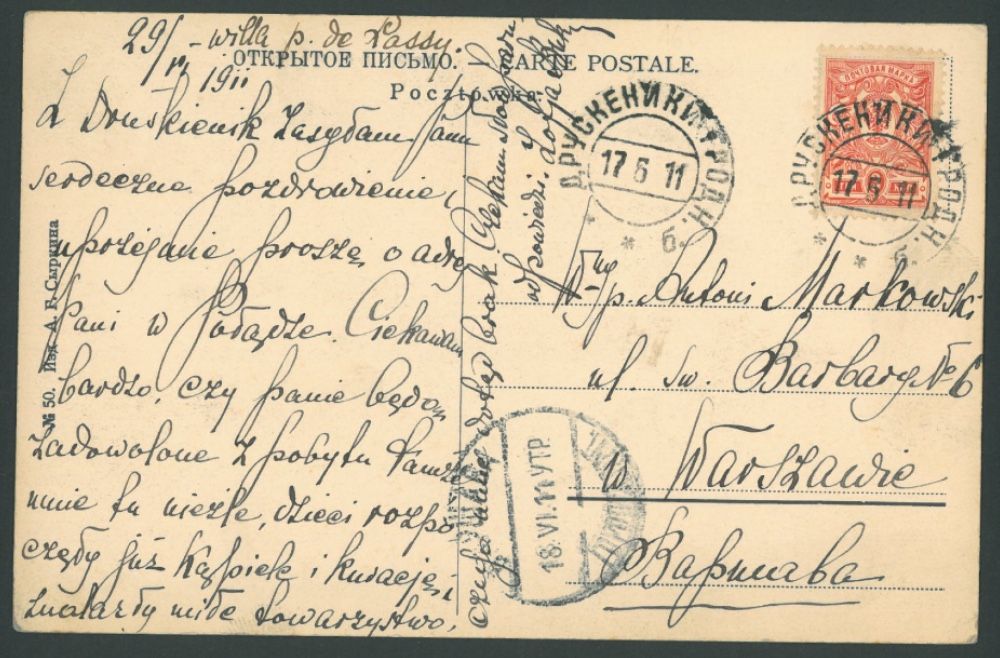 29/VI 1911 - willa p. de Lassy.
ОТКРЫТОЕ ПИСЬМО. CARTE POSTALE.
Pocztówka.
Z Druskienik zasyłam Pani
serdeczne pozdrowienie,
uprzejmie proszę o adres
Pani w
Ciekawam
bardzo, czy panie będą
zadowolone z pobytu tam.
mnie tu nieźle, dzieci rozpo
częły już kąpiele i kuracje, i
znalazły miłe towarzystwo,
dotąd brak
odpowiedzi.
№ 50. Изд. А. Е. Сыркина
ПОЧТОВАЯ МАРКА
ДРУСКЕНИКИ ГРОДН.
17 6 11
б.
ДРУСКЕНИКИ ГРОДН.
17 6 11
б.
Wny p. Antoni Markowski
ul. Św. Barbary № 6
w Warszawie
Варшава
18.VI.11 УТР